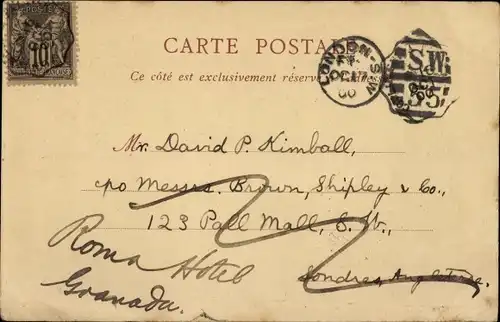 POSTES
10
CARTE POSTALE
Ce côté est exclusivement réservé
LONDON-S.W
OC 17
00
S.W.
35
Mr. David P. Kimball,
c/o Messrs. Brown, Shipley & Co.,
123 Pall Mall, S. W.,
Londres, Angleterre.
Roma Hotel
Granada.